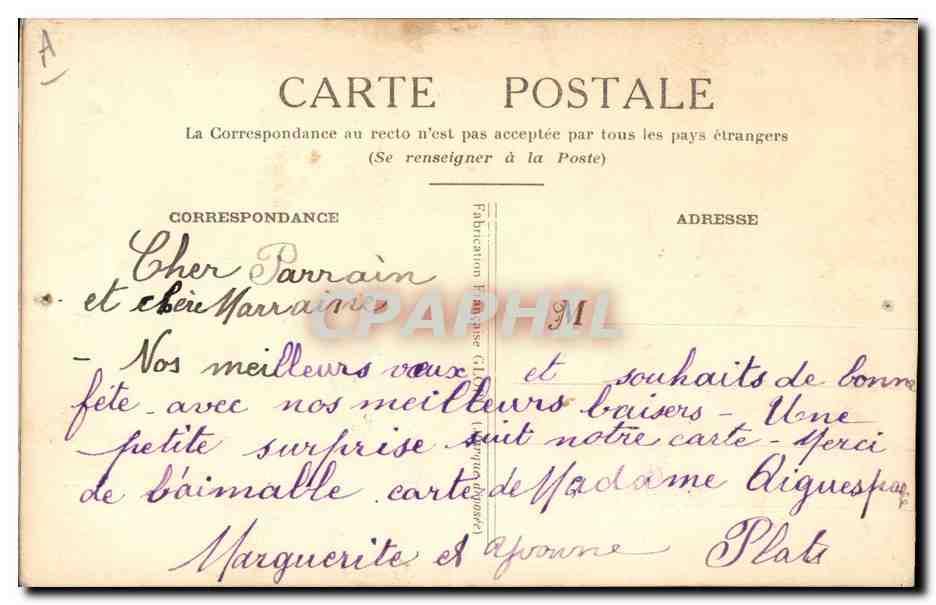 A
CARTE POSTALE
La Correspondance au recto n'est pas acceptée par tous les pays étrangers
(Se renseigner à la Poste)
CORRESPONDANCE
ADRESSE
Cher Parrain
et chère Marraine
M
CPAPHIL
Fabrication Française
– Nos meilleurs vœux et souhaits de bonne
fête – avec nos meilleurs baisers – Une
petite surprise suit notre carte – Merci
de l'aimable carte de Madame
Marguerite et Yvonne